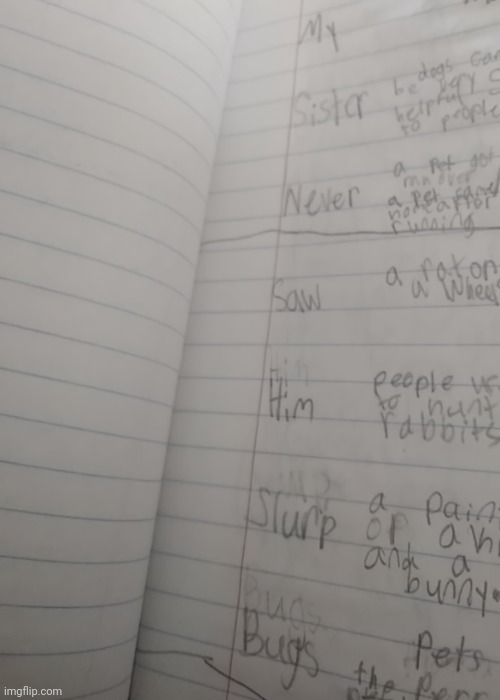 My
Sister
dogs can
be very
helpful
to people
Never
a pet got
ran over
a pet
running
Saw
a rat on
a wheel
Him
Him
people us
to hunt
rabbits
Slurp
a pain
or a
and a
bunny.
Bugs
Bugs
Pets
the
imgflip.com